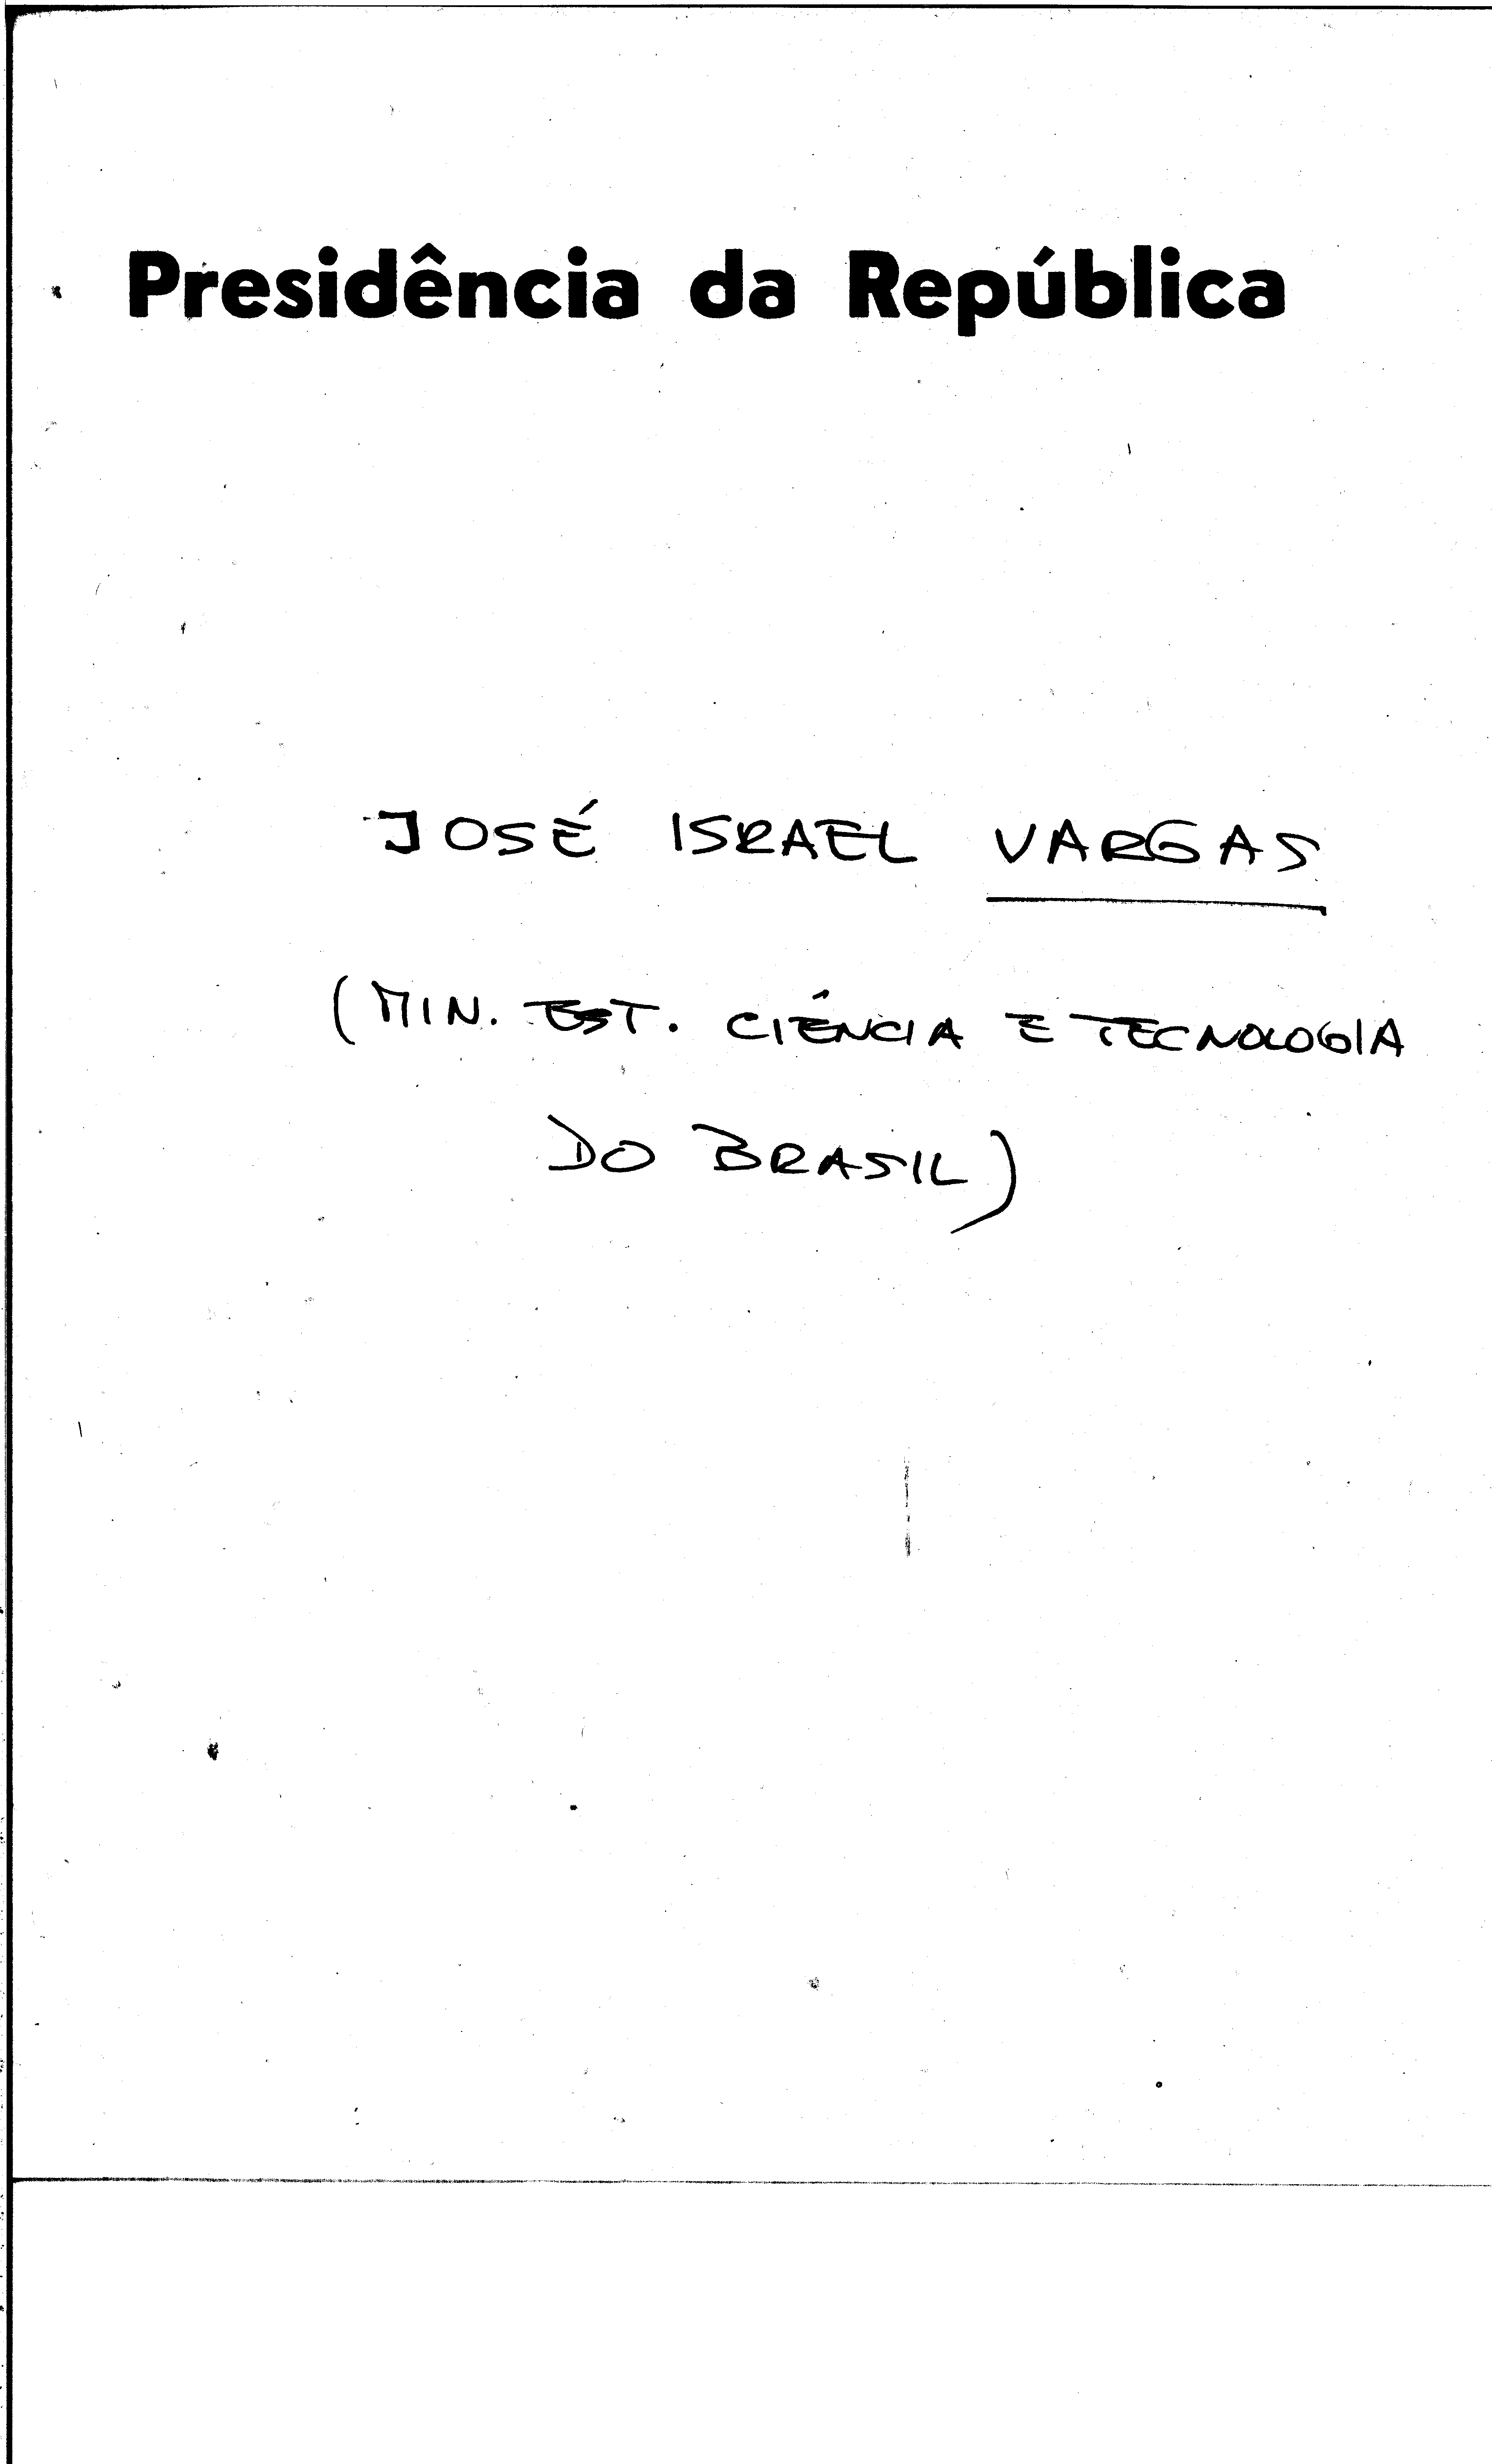 Presidência da República
JOSÉ ISRAEL VARGAS
(MIN. EST. CIÊNCIA E TECNOLOGIA
DO BRASIL)